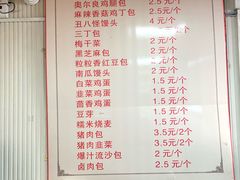 奥尔良鸡腿包 2.5元/个
麻辣香菇鸡丁包 2.5元/个
丑八怪馒头 4元/个
三丁包 2元/个
梅干菜 2元/个
黑芝麻包 2元/个
粒粒香红豆包 2元/个
南瓜馒头 2元/个
白菜鸡蛋 1.5元/个
韭菜鸡蛋 1.5元/个
茴香鸡蛋 1.5元/个
豆芽 1.5元/个
糯米烧麦 1.5元/个
猪肉包 3.5元/2个
猪肉韭菜 3.5元/2个
爆汁流沙包 2元/个
卤肉包 2.5元/个